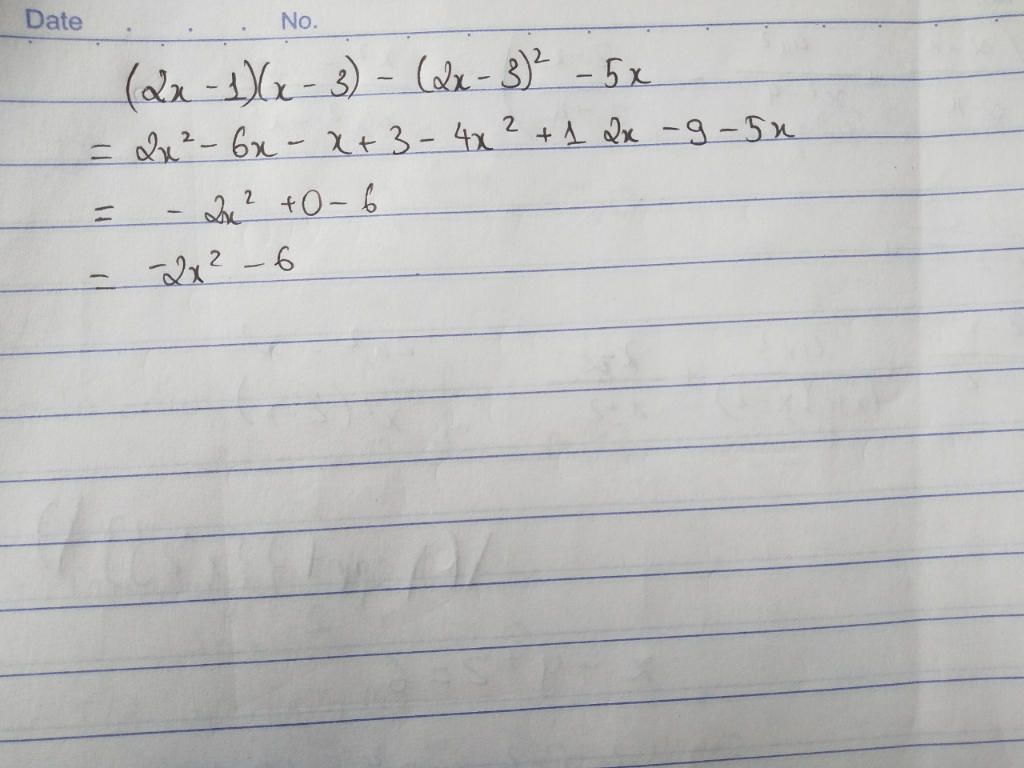 Date . . . No.
(2x - 1)(x - 3) - (2x - 3)² - 5x
= 2x² - 6x - x + 3 - 4x² + 12x - 9 - 5x
= - 2x² + 0 - 6
= -2x² - 6